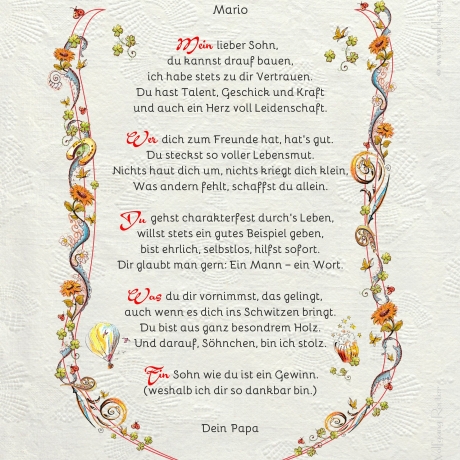 Mario
Mein lieber Sohn,
du kannst drauf bauen,
ich habe stets zu dir Vertrauen.
Du hast Talent, Geschick und Kraft
und auch ein Herz voll Leidenschaft.
Wer dich zum Freunde hat, hat's gut.
Du steckst so voller Lebensmut.
Nichts haut dich um, nichts kriegt dich klein,
Was andern fehlt, schaffst du allein.
Du gehst charakterfest durch's Leben,
willst stets ein gutes Beispiel geben,
bist ehrlich, selbstlos, hilfst sofort.
Dir glaubt man gern: Ein Mann – ein Wort.
Was du dir vornimmst, das gelingt,
auch wenn es dich ins Schwitzen bringt.
Du bist aus ganz besondrem Holz.
Und darauf, Söhnchen, bin ich stolz.
Ein Sohn wie du ist ein Gewinn.
(weshalb ich dir so dankbar bin.)
Dein Papa